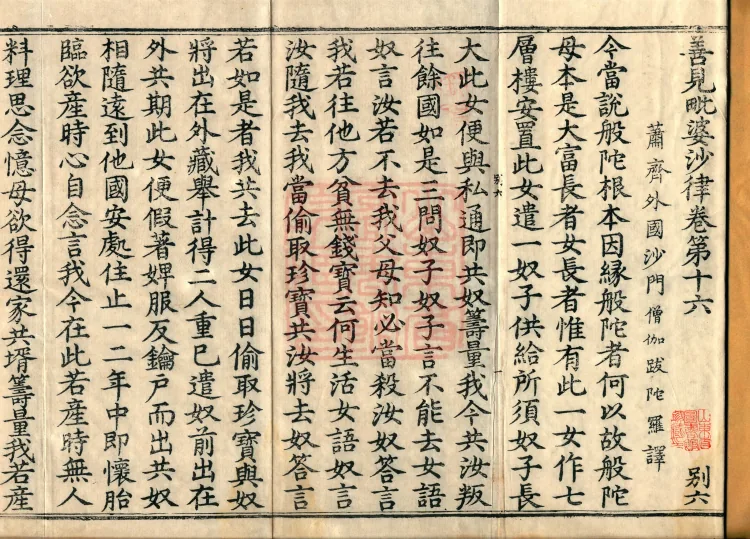 善見毗婆沙律卷第十六 別六
蕭齊外國沙門僧伽跋陀羅譯
今當說般陀根本因緣般陀者何以故般陀
母本是大富長者女長者惟有此一女作七
層樓安置此女遣一奴子供給所須奴子長
大此女便與私通即共奴籌量我今共汝叛
別六
往餘國如是三問奴子奴子言不能去女語
奴言汝若不去我父母知必當殺汝奴答言
我若往他方貧無錢寶云何生活女語奴言
汝隨我去我當偷取珍寶共汝將去奴答言
若如是者我共去此女日日偷取珍寶與奴
將出在外藏舉計得二人重已遣奴前出在
外共期此女便假著婢服反鑰戶而出共奴
相隨遠到他國安處住止一二年中即懷胎
臨欲產時心自念言我今在此若產時無人
料理思念憶母欲得還家共壻籌量我若產